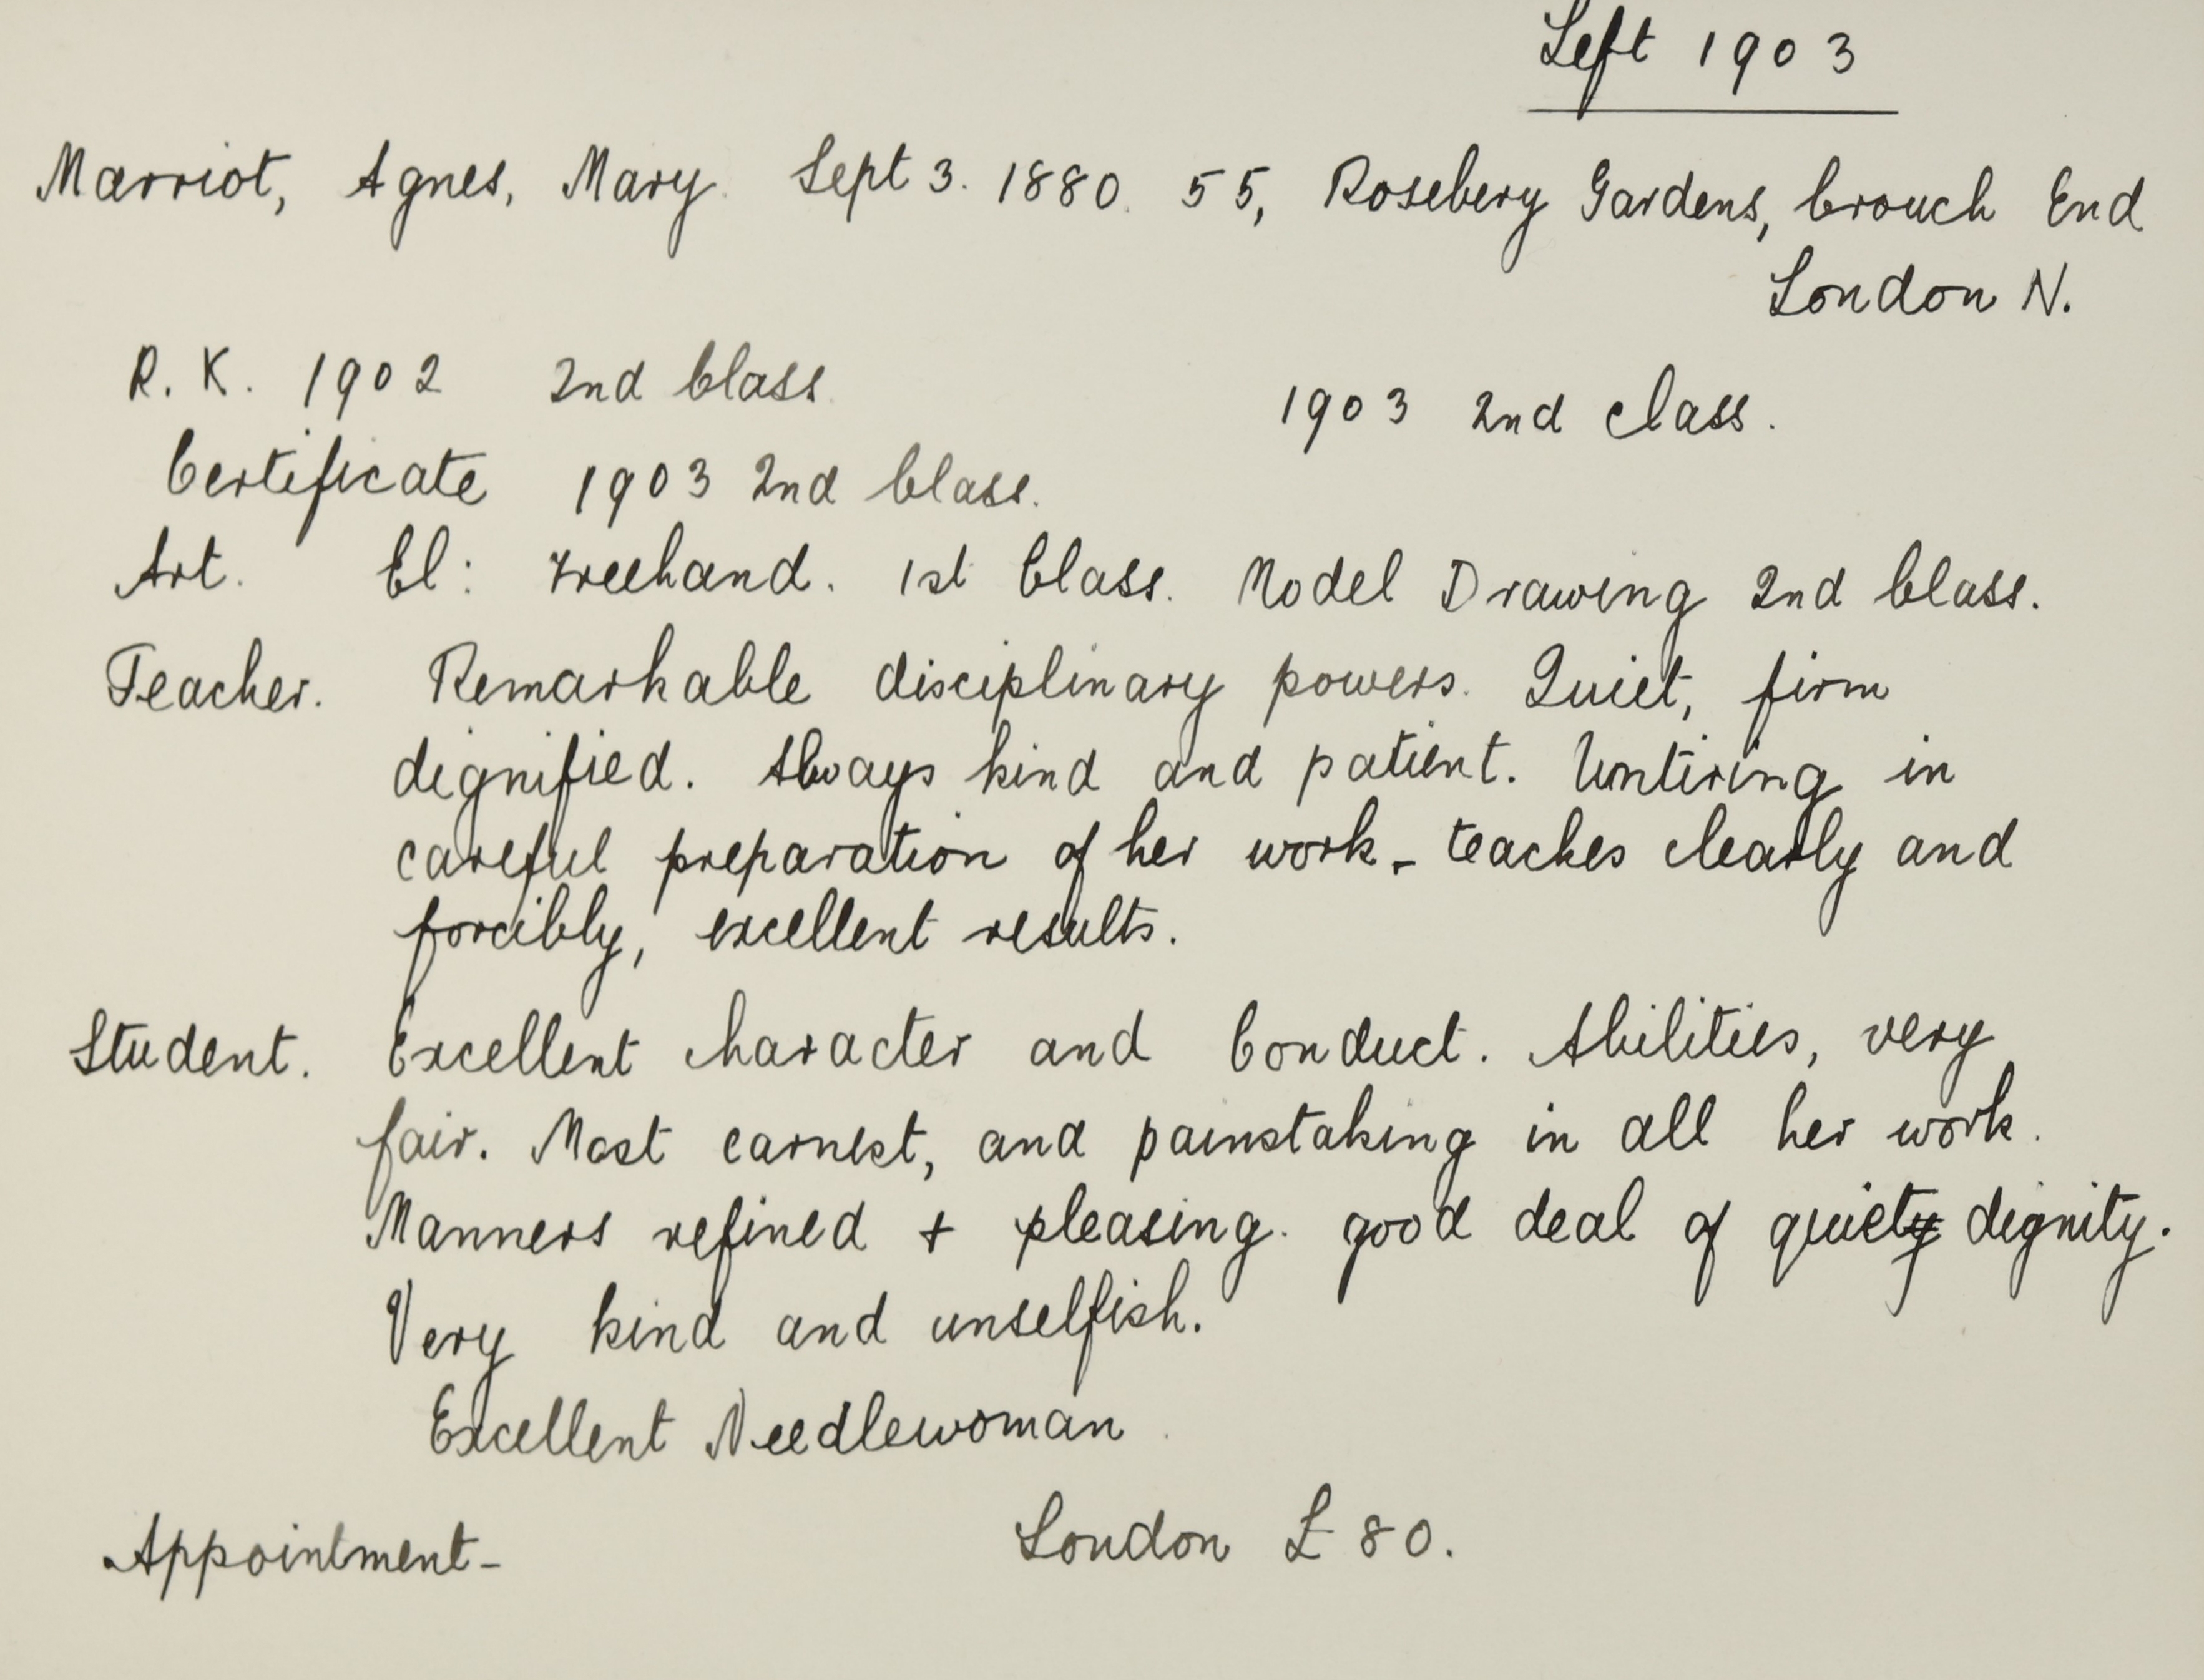 Left 1903
Marriot, Agnes, Mary. Sept 3. 1880. 55, Rosebery Gardens, Crouch End
London N.
R. K. 1902 2nd Class. 1903 2nd class.
Certificate 1903 2nd Class.
Art. El: Freehand. 1st Class. Model Drawing 2nd Class.
Teacher. Remarkable disciplinary powers. Quiet, firm
dignified. Always kind and patient. Untiring in
careful preparation of her work - teaches clearly and
forcibly, excellent results.
Student. Excellent character and Conduct. Abilities, very
fair. Most earnest, and painstaking in all her work.
Manners refined + pleasing. good deal of quiet dignity.
Very kind and unselfish.
Excellent Needlewoman.
Appointment - London £80.